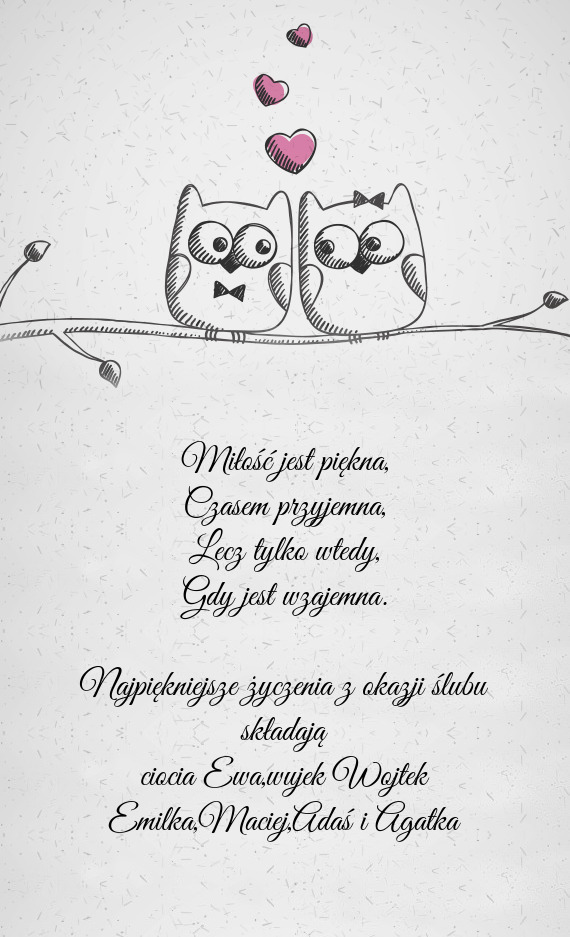 Miłość jest piękna,
Czasem przyjemna,
Lecz tylko wtedy,
Gdy jest wzajemna.
Najpiękniejsze życzenia z okazji ślubu
składają
ciocia Ewa,wujek Wojtek
Emilka,Maciej,Adaś i Agatka